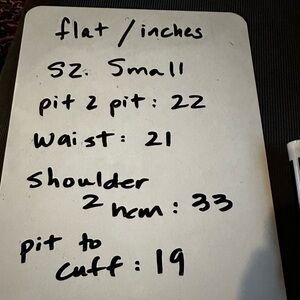 flat / inches
sz. Small
pit 2 pit: 22
waist: 21
shoulder
2 hem: 33
pit to
cuff: 19